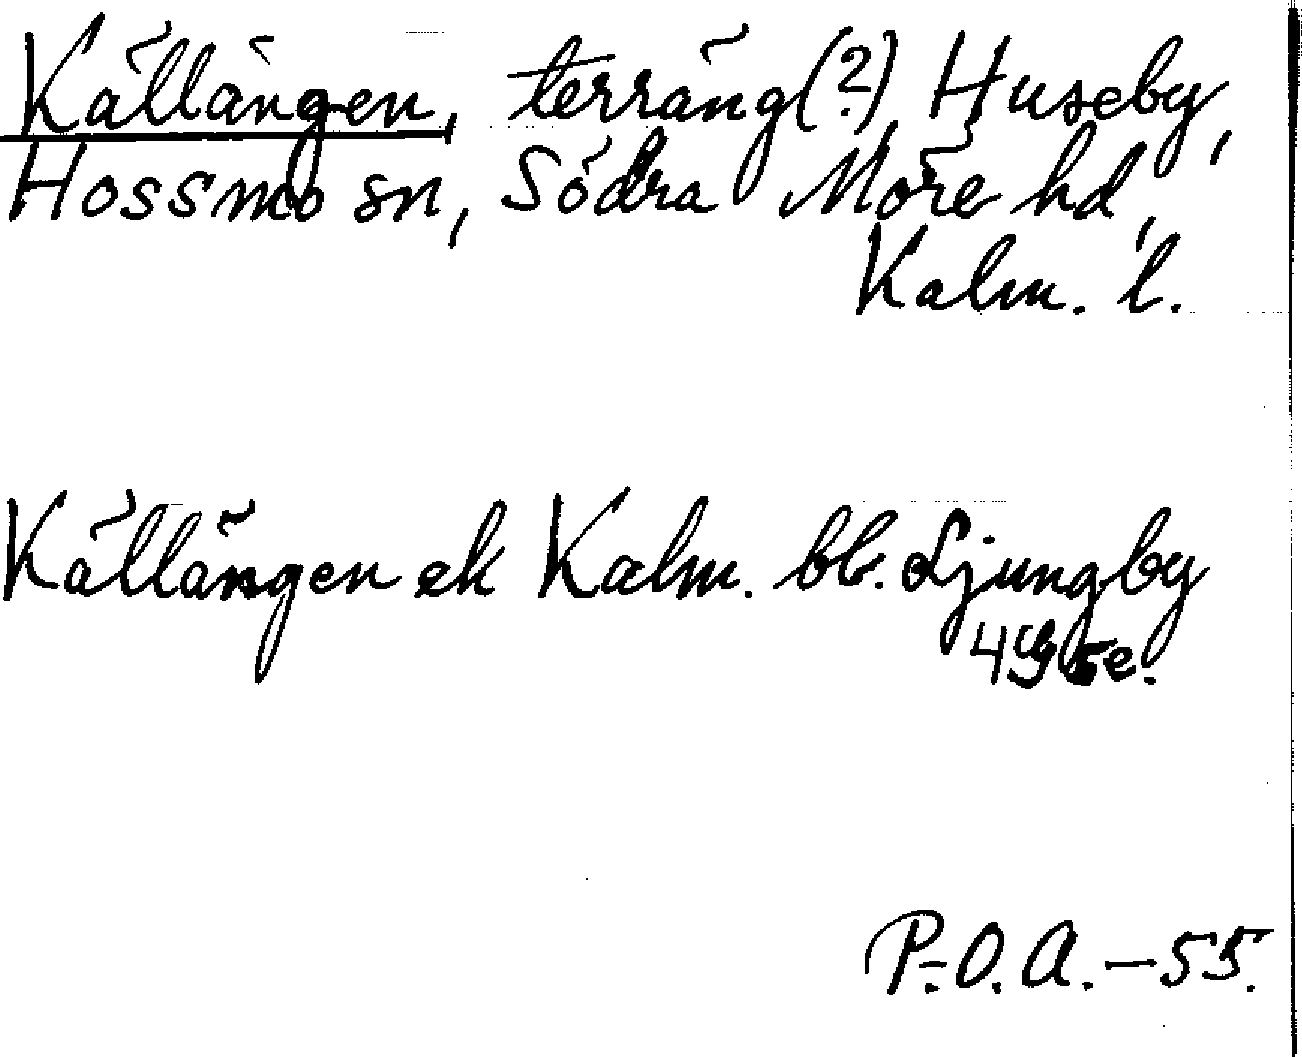 Källängen, terräng(?) Huseby,
Hossmo sn, Södra Möre hd,
Kalm. l.
Källängen ek Kalm. bl. Ljungby
4g 5e.
P.-O. A. - 55.